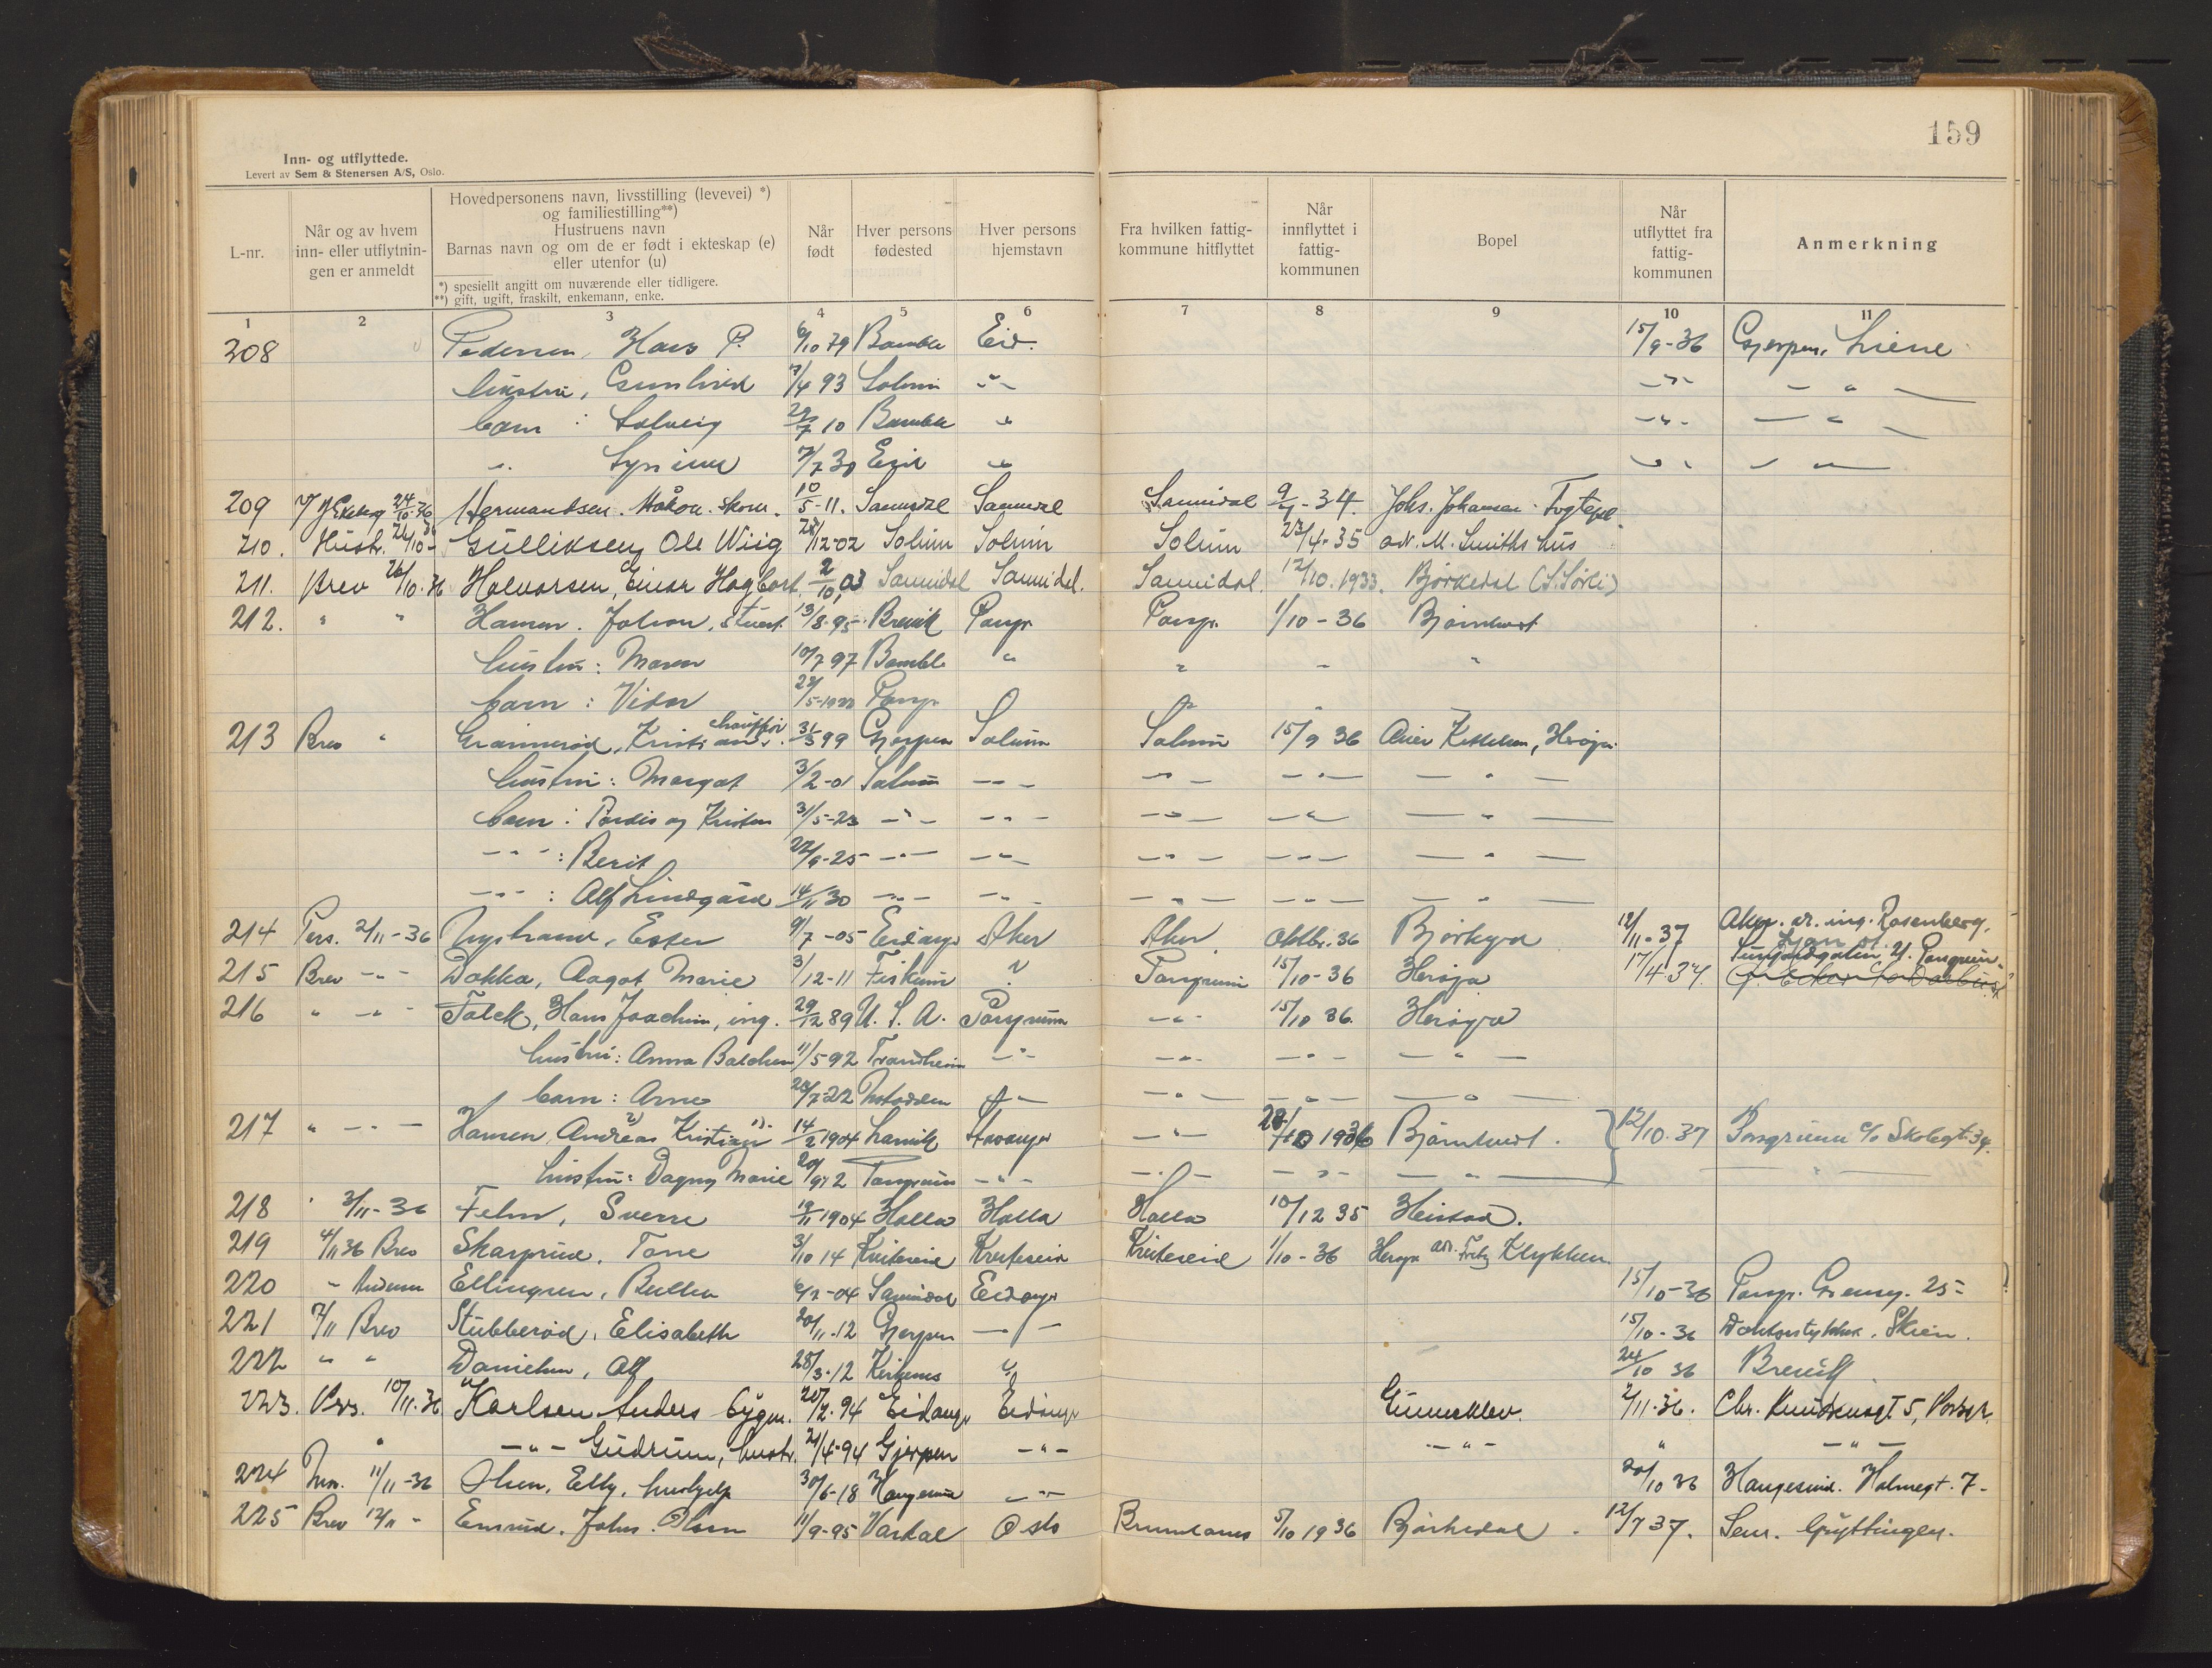 159
Inn- og utflyttede.
Levert av Sem & Stenersen A/S, Oslo.
L-nr.
Når og av hvem inn- eller utflytnin- gen er anmeldt
Hovedpersonens navn, livsstilling (levevei) *) og familiestilling**) Hustruens navn Barnas navn og om de er født i ekteskap (e) eller utenfor (u)
*) spesiellt angitt om nuværende eller tidligere.
**) gift, ugift, fraskilt, enkemann, enke.
Når født
Hver persons fødested
Hver persons hjemstavn
Fra hvilken fattig- kommune hitflyttet
Når innflyttet i fattig- kommunen
Bopel
Når utflyttet fra fattig- kommunen
Anmerkning
1 2 3 4 5 6 7 8 9 10 11
208 Pedersen, Hans P. 6/10 79 Bamble Eid. 15/9-36 Gjerpen, Liene
hustru, Gunhild 7/4 93 Solum -"- -"- -"-
barn : Solveig 7 10 Bamble " -"- -"-
". 7/7 30 Eid " " "
209 24/10-36 Hermandsen. Håkon. 10/5-11. Sannidal Sannidal Sannidal 9/1-34. Johs. Johansen
210. Hustr. Gulliksen, Ole Wiig 12-02 Solum Solum Solum 23/4-35 adr. M. Smiths hus
211. Brev 26/10.36 Halvorsen, Einar Hagbart 2/10 03 Sannidal Sannidal. Sannidal. 12/10.1933. Bjørkedal (S. Sørli)
212. " " Hansen. Johan, stuert 13/8.95 Brevik Porsgr. Porsgr. 1/10-36 Bjørntvedt
hustru: Maren 10/7 97 Bamble " " - "
barn : Vidar Porsgr. "
213 Brev " Grannerød, Kristian chauffør 31/3 99 Gjerpen Solum Solum 15/9 36 Herøya
hustru: Margot 3/2-01 Solum -"- -"- -"- -"-
barn : Tordis og Kristen 31/5-23 -"- -"- -"- -"- -"-
-"- : Berit 22/9-25 -"- -"- -"- -"- -"-
-"- : Alf Lindgård 14/11 30 -"- -"- -"- -"- -"-
214 Pers. 2/11-36 Nystrand, Ester 9/7-05 Eidanger Aker Aker Oktbr. 36 Bjørkøya 12/11-37 Aker. ad. ing. Rosenberg.
215 Brev -"- Dokka, Aagot Marie 3/12-11 Fiskum ? Porsgrunn 15/10-36 Herøya 17/4-37. Porsgrunn
216 " -"- Falck, Hans Joachim, ing. 29/12 89 U.S.A. Porsgrunn -"- 15/10 36. Herøya
hustru: Anna Balchen 11/5-92 Trondheim -"- -"- -"- -"-
barn : Arne 28/7-22 Notodden -"- -"- -"- -"-
217 " -"- Hansen, Andreas Kristian 14/2 1904 Larvik Stavanger -"- 28/10 1936 Bjørntvedt. 12/10.37 Porsgrunn c/o Skolegt. 34.
hustru: Dagny Marie Porsgrunn -"- -"- -"- -"- "
218 " 3/11-36 Fehn, Sverre 12/11 1904 Holla Holla Holla 10/12 35 Heistad.
219 4/11 36 Brev Skarprud, Tone 3/10 14 Kviteseid Kviteseid Kviteseid 1/10-36 Herøya adr. Fritz Klykken
220 Ellingsen, 6/2-04 Sannidal Eidanger 15/10-36 Porsgr. 25
221 7/11 Brev Stubberød, Elisabeth 20/11-12 Gjerpen -"- 15/10-36 Skien.
222 " " Danielsen, Alf 28/3-12 Kirkenes " 24/10 36 Brevik
223. Pers. 10/11.36 Karlsen Anders bygm. 20/2.94 Eidanger Eidanger Gunneklev. 2/11.36. Chr. Knudsensgt 5, Porsgr.
" -"- Gudrun, hustr. 21/4-94 Gjerpen -"- -"- " -"-
224 11/11-36 Olsen, Elly, hushjelp 30/6-18 Haugesund -"- 20/10 36 Haugesund. Holmegt. 7-
225 Brev 12/11 - Emrud. Johs. Olsen 11/9-95 Vardal Oslo Brunlanes 5/10 1936 Bjørkedal. 12/7 37. Sem.